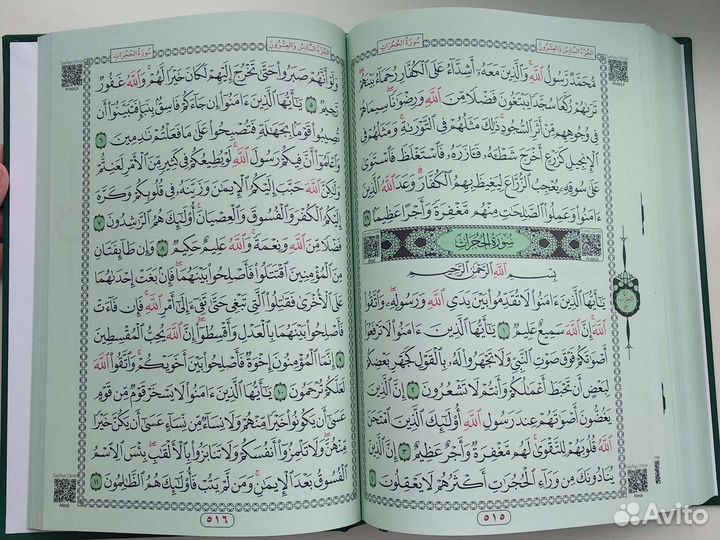 الجُزْءُ السَّادِسُ وَالعِشْرُونَ
سُورَةُ الحُجُرَاتِ
مُحَمَّدٌ رَسُولُ اللَّهِ وَالَّذِينَ مَعَهُ أَشِدَّاءُ عَلَى الْكُفَّارِ رُحَمَاءُ بَيْنَهُمْ
تَرَىٰهُمْ رُكَّعًا سُجَّدًا يَبْتَغُونَ فَضْلًا مِّنَ اللَّهِ وَرِضْوَانًا سِيمَاهُمْ
فِي وُجُوهِهِم مِّنْ أَثَرِ السُّجُودِ ذَٰلِكَ مَثَلُهُمْ فِي التَّوْرَىٰةِ وَمَثَلُهُمْ فِي
الْإِنجِيلِ كَزَرْعٍ أَخْرَجَ شَطْأَهُ فَآزَرَهُ فَاسْتَغْلَظَ فَاسْتَوَىٰ
عَلَىٰ سُوقِهِ يُعْجِبُ الزُّرَّاعَ لِيَغِيظَ بِهِمُ الْكُفَّارَ وَعَدَ اللَّهُ الَّذِينَ
ءَامَنُوا وَعَمِلُوا الصَّٰلِحَٰتِ مِنْهُم مَّغْفِرَةً وَأَجْرًا عَظِيمًا ٢٩
سُورَةُ الْحُجُرَاتِ
بِسْمِ اللَّهِ الرَّحْمَٰنِ الرَّحِيمِ
يَٰأَيُّهَا الَّذِينَ ءَامَنُوا لَا تُقَدِّمُوا بَيْنَ يَدَيِ اللَّهِ وَرَسُولِهِ وَاتَّقُوا
اللَّهَ إِنَّ اللَّهَ سَمِيعٌ عَلِيمٌ ١ يَٰأَيُّهَا الَّذِينَ ءَامَنُوا لَا تَرْفَعُوا
أَصْوَٰتَكُمْ فَوْقَ صَوْتِ النَّبِيِّ وَلَا تَجْهَرُوا لَهُ بِالْقَوْلِ كَجَهْرِ بَعْضِكُمْ
لِبَعْضٍ أَن تَحْبَطَ أَعْمَٰلُكُمْ وَأَنتُمْ لَا تَشْعُرُونَ ٢ إِنَّ الَّذِينَ
يَغُضُّونَ أَصْوَٰتَهُمْ عِندَ رَسُولِ اللَّهِ أُولَٰئِكَ الَّذِينَ امْتَحَنَ
اللَّهُ قُلُوبَهُمْ لِلتَّقْوَىٰ لَهُم مَّغْفِرَةٌ وَأَجْرٌ عَظِيمٌ ٣ إِنَّ الَّذِينَ
يُنَادُونَكَ مِن وَرَاءِ الْحُجُرَٰتِ أَكْثَرُهُمْ لَا يَعْقِلُونَ ٤
٥١٥
الجُزْءُ السَّادِسُ وَالعِشْرُونَ
سُورَةُ الحُجُرَاتِ
وَلَوْ أَنَّهُمْ صَبَرُوا حَتَّىٰ تَخْرُجَ إِلَيْهِمْ لَكَانَ خَيْرًا لَّهُمْ وَاللَّهُ غَفُورٌ
رَّحِيمٌ ٥ يَٰأَيُّهَا الَّذِينَ ءَامَنُوا إِن جَاءَكُمْ فَاسِقٌ بِنَبَإٍ فَتَبَيَّنُوا أَن
تُصِيبُوا قَوْمًا بِجَهَٰلَةٍ فَتُصْبِحُوا عَلَىٰ مَا فَعَلْتُمْ نَٰدِمِينَ ٦
وَاعْلَمُوا أَنَّ فِيكُمْ رَسُولَ اللَّهِ لَوْ يُطِيعُكُمْ فِي كَثِيرٍ مِّنَ الْأَمْرِ لَعَنِتُّمْ
وَلَٰكِنَّ اللَّهَ حَبَّبَ إِلَيْكُمُ الْإِيمَٰنَ وَزَيَّنَهُ فِي قُلُوبِكُمْ وَكَرَّهَ
إِلَيْكُمُ الْكُفْرَ وَالْفُسُوقَ وَالْعِصْيَانَ أُولَٰئِكَ هُمُ الرَّٰشِدُونَ ٧
فَضْلًا مِّنَ اللَّهِ وَنِعْمَةً وَاللَّهُ عَلِيمٌ حَكِيمٌ ٨ وَإِن طَائِفَتَانِ
مِنَ الْمُؤْمِنِينَ اقْتَتَلُوا فَأَصْلِحُوا بَيْنَهُمَا فَإِن بَغَتْ إِحْدَىٰهُمَا
عَلَى الْأُخْرَىٰ فَقَٰتِلُوا الَّتِي تَبْغِي حَتَّىٰ تَفِيءَ إِلَىٰ أَمْرِ اللَّهِ فَإِن فَاءَتْ
فَأَصْلِحُوا بَيْنَهُمَا بِالْعَدْلِ وَأَقْسِطُوا إِنَّ اللَّهَ يُحِبُّ الْمُقْسِطِينَ
٩ إِنَّمَا الْمُؤْمِنُونَ إِخْوَةٌ فَأَصْلِحُوا بَيْنَ أَخَوَيْكُمْ وَاتَّقُوا اللَّهَ
لَعَلَّكُمْ تُرْحَمُونَ ١٠ يَٰأَيُّهَا الَّذِينَ ءَامَنُوا لَا يَسْخَرْ قَوْمٌ مِّن قَوْمٍ
عَسَىٰ أَن يَكُونُوا خَيْرًا مِّنْهُمْ وَلَا نِسَاءٌ مِّن نِّسَاءٍ عَسَىٰ أَن يَكُنَّ خَيْرًا
مِّنْهُنَّ وَلَا تَلْمِزُوا أَنفُسَكُمْ وَلَا تَنَابَزُوا بِالْأَلْقَٰبِ بِئْسَ الِاسْمُ
الْفُسُوقُ بَعْدَ الْإِيمَٰنِ وَمَن لَّمْ يَتُبْ فَأُولَٰئِكَ هُمُ الظَّٰلِمُونَ ١١
٥١٦
Meal
Avito